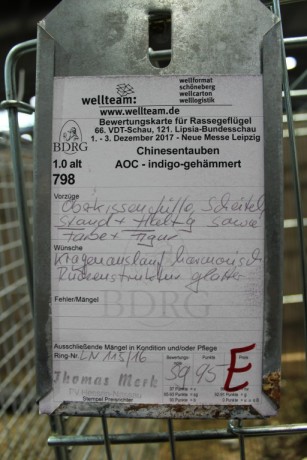 wellteam:
wellformat
schöneberg
wellcarton
welllogistik
www.wellteam.de
Bewertungskarte für Rassegeflügel
66. VDT-Schau, 121. Lipsia-Bundesschau
1. - 3. Dezember 2017 - Neue Messe Leipzig
BDRG
Chinesentauben
1.0 alt
AOC - indigo-gehämmert
798
Vorzüge
Scheitel
Stand + Haltg sowie
Farbe + Figur
Wünsche
Kragenauslauf harmonisch
Rückenstruktur glatter
Fehler/Mängel
BDRG
Ausschließende Mängel in Kondition und/oder Pflege
Ring-Nr. LN 115/16
Bewertung
Punkte
Preis
sg 95 E
Thomas Merk
Stempel Preisrichter